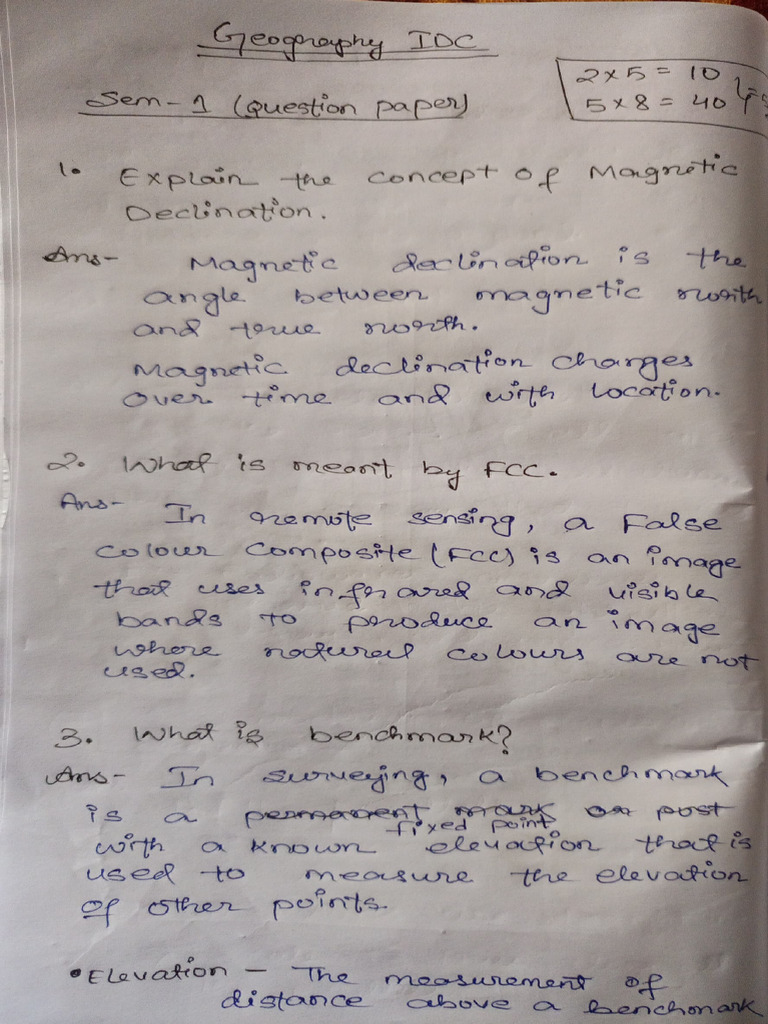 Geography IDC
Sem-1 (Question paper)
2 x 5 = 10
5 x 8 = 40
1. Explain the concept of Magnetic
Declination.
Ans- Magnetic declination is the
angle between magnetic north
and true north.
Magnetic declination changes
over time and with location.
2. What is meant by FCC.
Ans- In remote sensing, a False
colour composite (FCC) is an image
that uses infrared and visible
bands to produce an image
where natural colours are not
used.
3. What is benchmark?
Ans- In surveying, a benchmark
is a permanent mark or post
fixed point
with a known elevation that is
used to measure the elevation
of other points.
• Elevation - The measurement of
distance above a benchmark